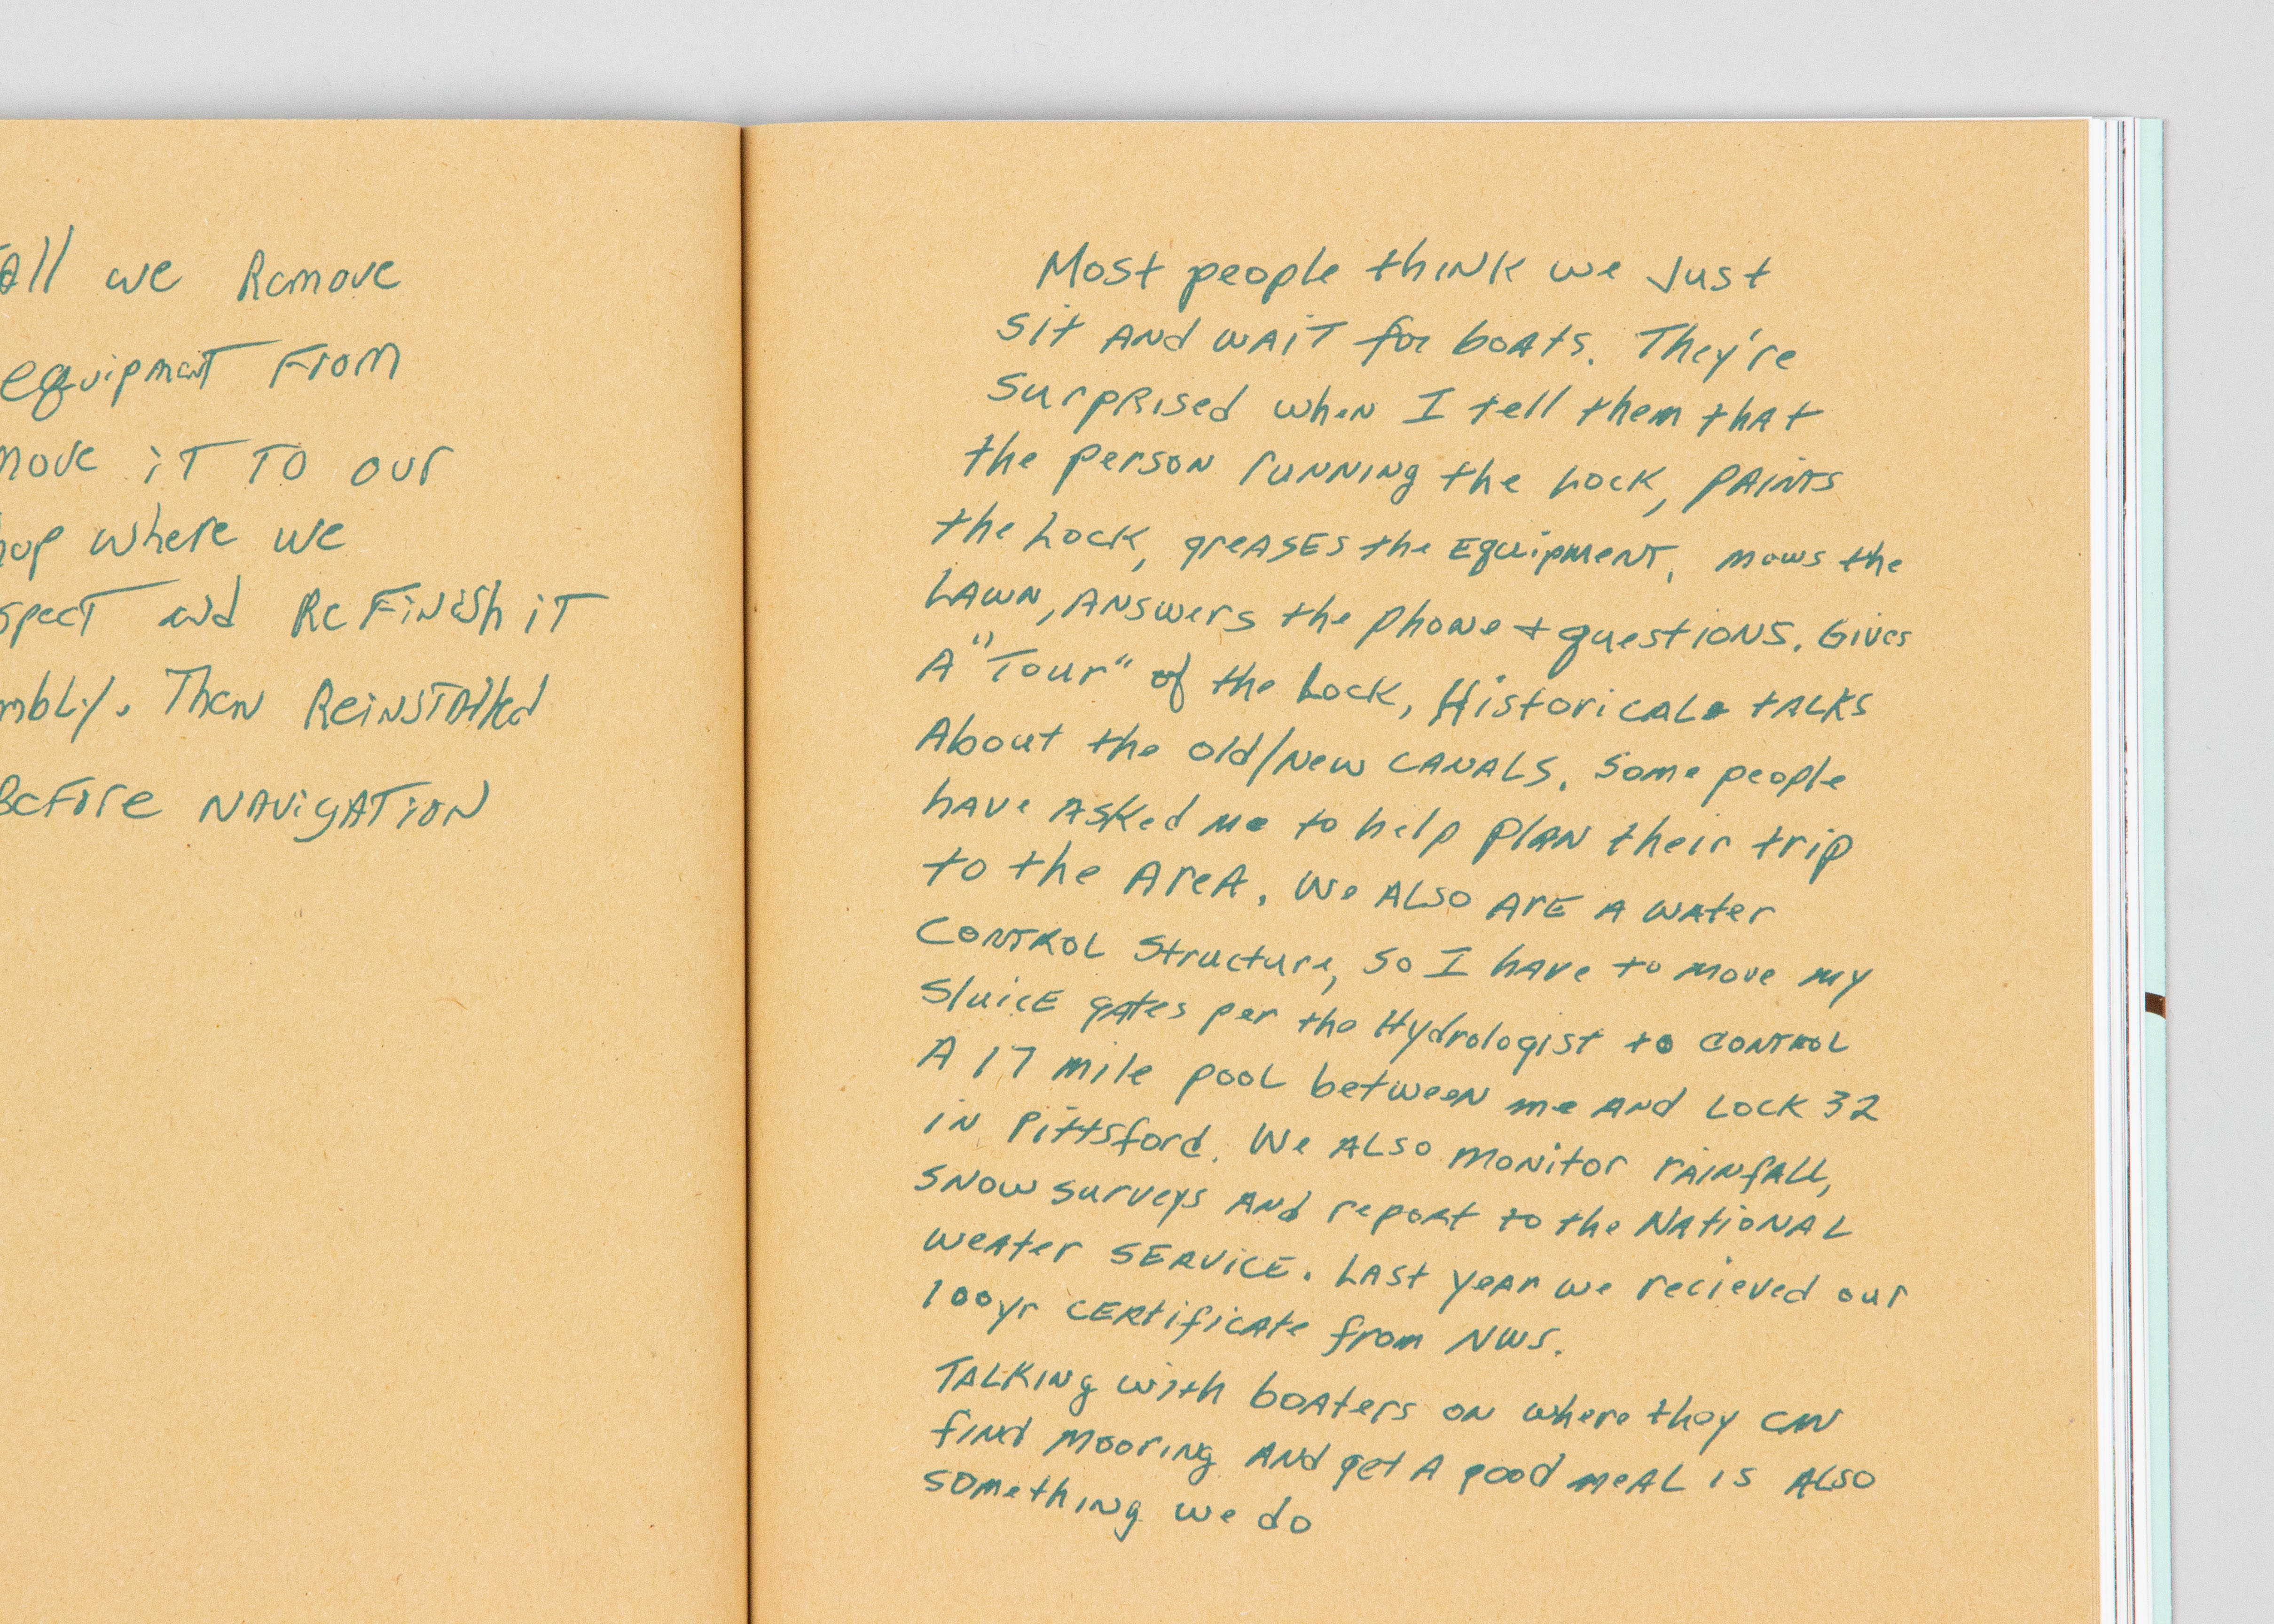 all we Remove
equipment From
move it to our
where we
and Refinish it
Then Reinstalled
Before navigation
Most people think we Just
sit and wait for boats. They're
surprised when I tell them that
the person running the Lock, paints
the Lock, greases the Equipment, mows the
Lawn, answers the phone + questions. Gives
A "Tour" of the Lock, Historical talks
About the old/new canals. Some people
have asked me to help plan their trip
to the area. We also are a water
Control Structure, so I have to move my
Sluice gates per the Hydrologist to control
A 17 mile pool between me and Lock 32
in Pittsford. We also monitor rainfall,
snow surveys and report to the National
weater Service. Last year we recieved our
100yr certificate from NWS.
Talking with boaters on where they can
find mooring and get a good meal is also
something we do